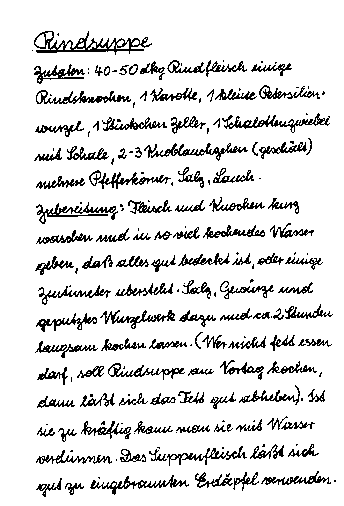 Rindsuppe
Zutaten: 40-50 dkg Rindfleisch einige
Rindsknochen, 1 Karotte, 1 kleine Petersilien-
wurzel, 1 Stückchen Zeller, 1 Schalottenzwiebel
mit Schale, 2-3 Knoblauchzehen (geschält)
mehrere Pfefferkörner, Salz, Lauch.
Zubereitung: Fleisch und Knochen kurz
waschen und in so viel kochendes Wasser
geben, daß alles gut bedeckt ist, oder einige
Zentimeter uebersteht. Salz, Gewürze und
geputztes Wurzelwerk dazu und ca. 2 Stunden
langsam kochen lassen. (Wer nicht fett essen
darf, soll Rindsuppe am Vortag kochen,
dann läßt sich das Fett gut abheben). Ist
sie zu kräftig kann man sie mit Wasser
verdünnen. Das Suppenfleisch läßt sich
gut zu eingebrannten Erdäpfel verwenden.